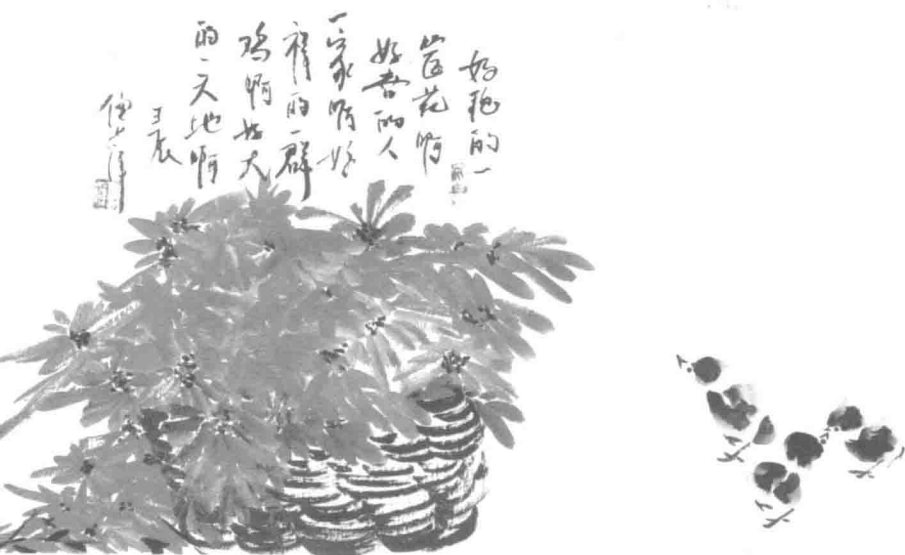 好艳的一
筐花啊
好喜的人
一家啊好
祥的一群
鸡啊好大
的一天地啊
壬辰